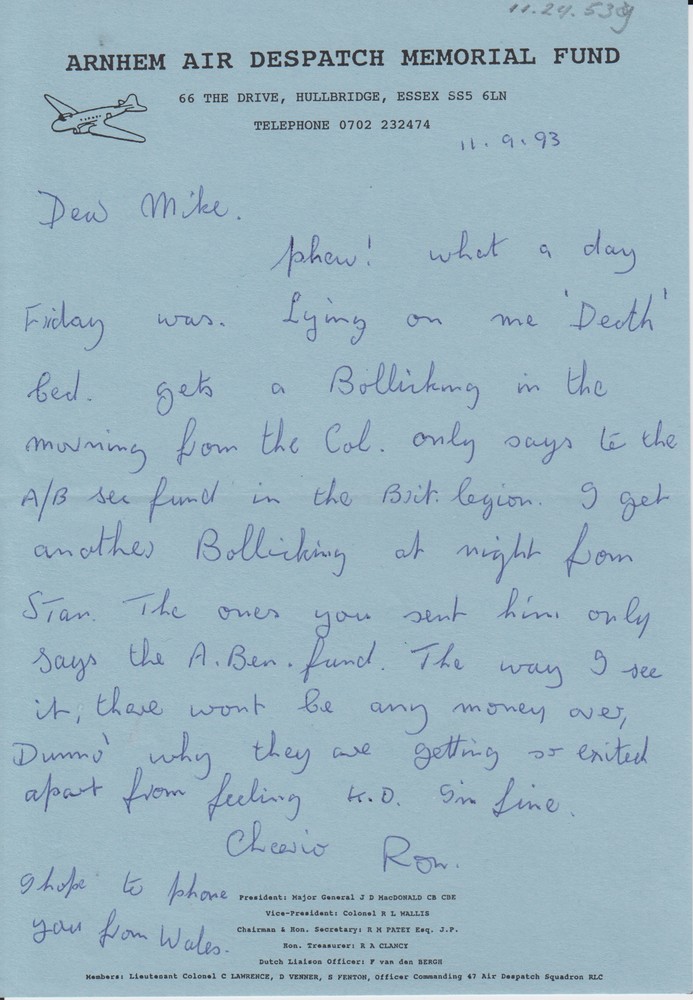 11.24.539
ARNHEM AIR DESPATCH MEMORIAL FUND
66 THE DRIVE, HULLBRIDGE, ESSEX SS5 6LN
TELEPHONE 0702 232474
11.9.93
Dear Mike.
phew! what a day
Friday was. Lying on me 'Death'
bed. gets a Bollicking in the
morning from the Col. only says to the
A/B sec fund in the Brit. legion. I get
another Bollicking at night from
Stan. The ones you sent him only
says the A.Ben.fund. The way I see
it, there wont be any money over,
Dunno' why they are getting so exited
apart from feeling K.O. Im fine.
Cheerio Ron.
I hope to phone
you from Wales.
President: Major General J D MacDONALD CB CBE
Vice-President: Colonel R L WALLIS
Chairman & Hon. Secretary: R M PATEY Esq. J.P.
Hon. Treasurer: R A CLANCY
Dutch Liaison Officer: F van den BERGH
Members: Lieutenant Colonel C LAWRENCE, D VENNER, S FENTON, Officer Commanding 47 Air Despatch Squadron RLC